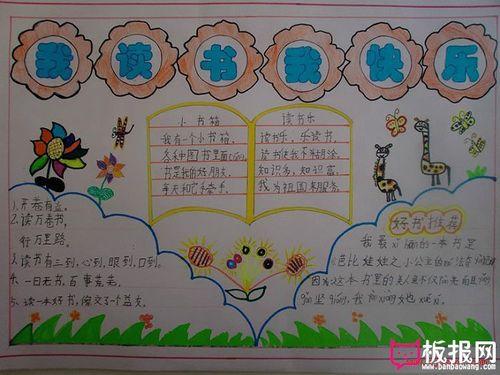 我读书我快乐
小书箱
我有一个小书箱,
各种图书里面
书是我的好朋友,
每天和它手牵手。
读书乐
读书乐,乐读书,
读书使我不糊涂。
知识多,知识富,
我为祖国来服务。
1、开卷有益。
2、读万卷书,
行万里路。
3、读书有三到,心到,眼到,口到。
4、一日无书,百事荒芜。
5、读一本好书,
好书推荐
我最
的一本书是
芭比娃娃之小公主的
因为这本书里的
不仅
而且
我
向
她
学习。
板报网
www.banbaowang.com